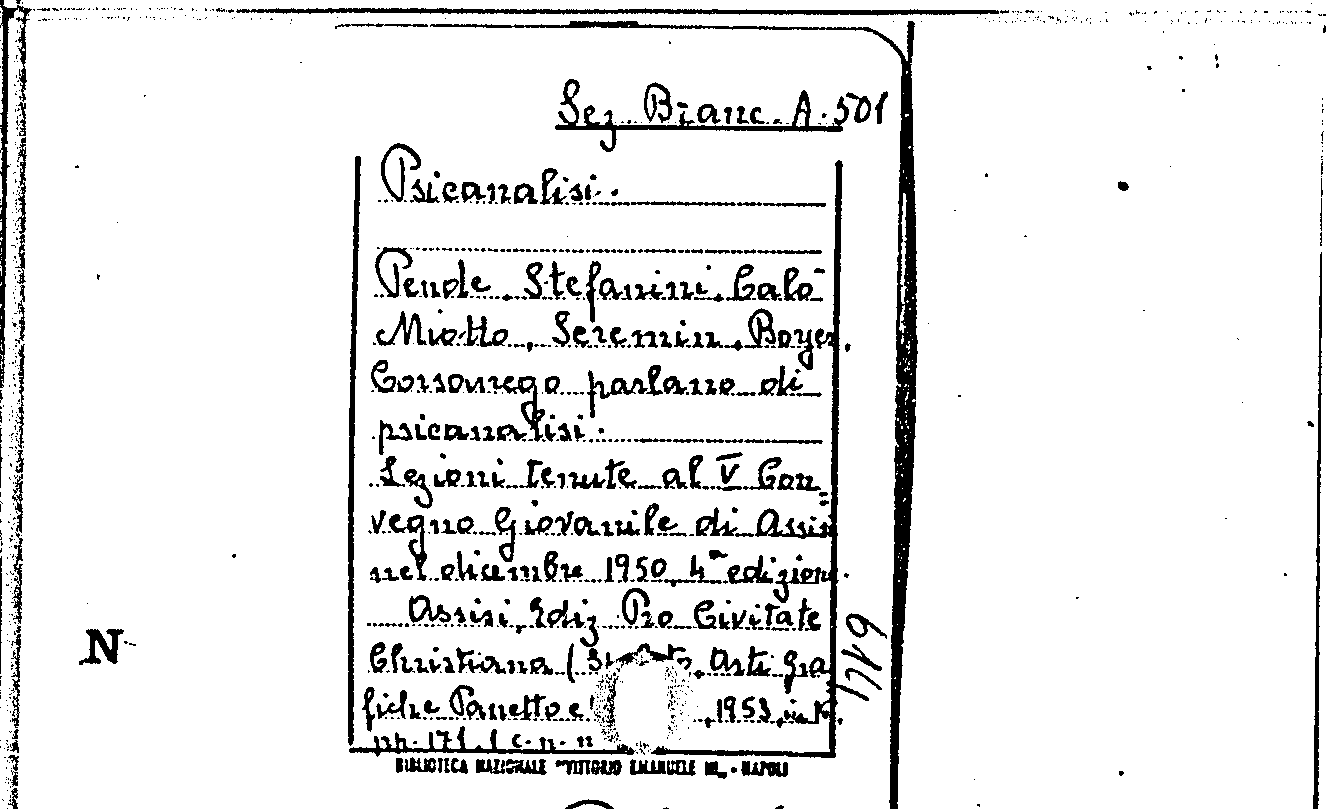 Sez. Branc. A. 501
Psicanalisi.
Pende, Stefanini, Calò
Miotto, Seremin, Boyer,
Corsanego parlano di
psicanalisi.
Lezioni tenute al V Con=
vegno Giovanile di Assisi
nel dicembre 1950, 4ª edizione.
Assisi, Ediz Pro Civitate
Christiana ( Arti Gra
fiche Panetto e , 1953, in
pp. 171, 1 c. n. n
N
BIBLIOTECA NAZIONALE "VITTORIO EMANUELE III" - NAPOLI